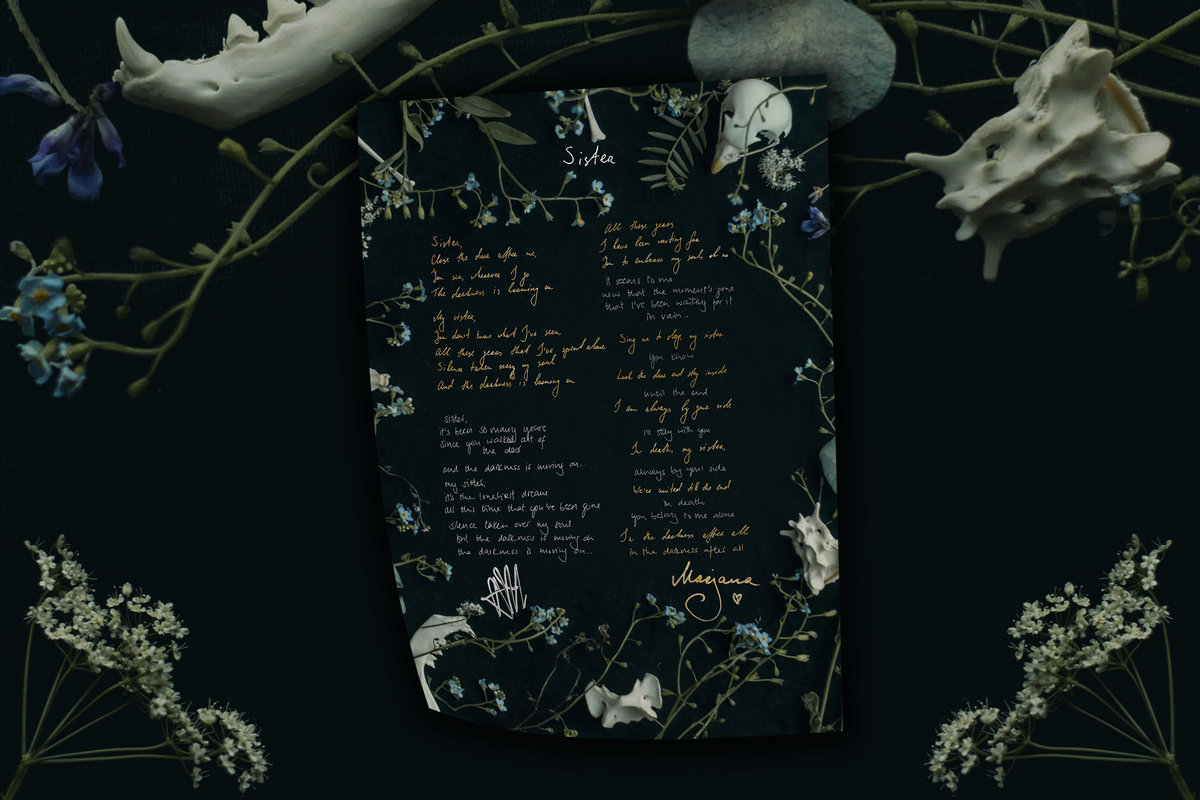 Sister
Sister,
Close the door after me,
You see, wherever I go
The darkness is looming on
My sister,
You don't know what I've seen
All these years that I've spent alone
Silence taken over my soul
And the darkness is looming on
sister,
it's been so many years
since you walked out of
the door
and the darkness is moving on...
my sister,
it's the loneliest dream
all this time that you've been gone
silence taken over my soul
but the darkness is moving on
the darkness is moving on...
All these years
I have been waiting for
You to embrace my soul, oh no
it seems to me
now that the moment's gone
that I've been waiting for it
in vain...
Sing me to sleep, my sister
you know
Lock the door and stay inside
until the end
I am always by your side
I'll stay with you
In death, my sister,
always by your side
We're united till the end
in death
you belong to me alone
In the darkness after all
in the darkness after all
Marjana